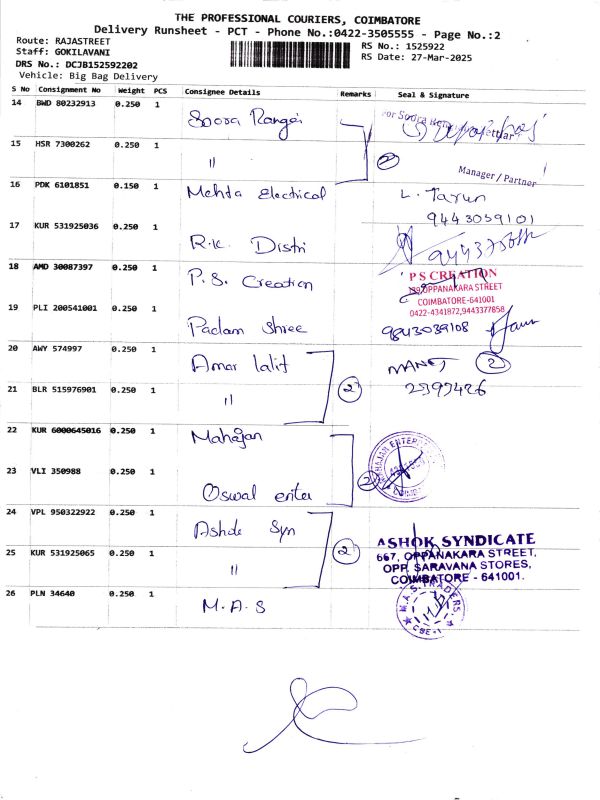 THE PROFESSIONAL COURIERS, COIMBATORE
Delivery Runsheet - PCT - Phone No.:0422-3505555 - Page No.:2
Route: RAJASTREET
Staff: GOKILAVANI
DRS No.: DCJB152592202
Vehicle: Big Bag Delivery
RS No.: 1525922
RS Date: 27-Mar-2025
S No Consignment No Weight PCS Consignee Details Remarks Seal & Signature
14 BWD 80232913 0.250 1 Soora Ranges
15 HSR 7300262 0.250 1 " 2 Manager / Partner
16 PDK 6101851 0.150 1 Mehta Electrical L. Tarun
9443059101
17 KUR 531925036 0.250 1 R.K. Distri
18 AMD 30087397 0.250 1 P.S. Creation
P S CREATION
139, OPPANAKARA STREET
COIMBATORE-641001
0422-4341872, 9443377858
19 PLI 200541001 0.250 1 Padam Shree 9843039108
20 AWY 574997 0.250 1 Amar lalit 2
21 BLR 515976901 0.250 1 " 2 2399426
22 KUR 6000645016 0.250 1 Mahajan
23 VLI 350988 0.250 1 Oswal enter 2
24 VPL 950322922 0.250 1 Ashok Syn
25 KUR 531925065 0.250 1 " 2
ASHOK SYNDICATE
667, OPPANAKARA STREET,
OPP. SARAVANA STORES,
COIMBATORE - 641001.
26 PLN 34640 0.250 1 M.A.S
M.A.S. TRADERS
CBE-1